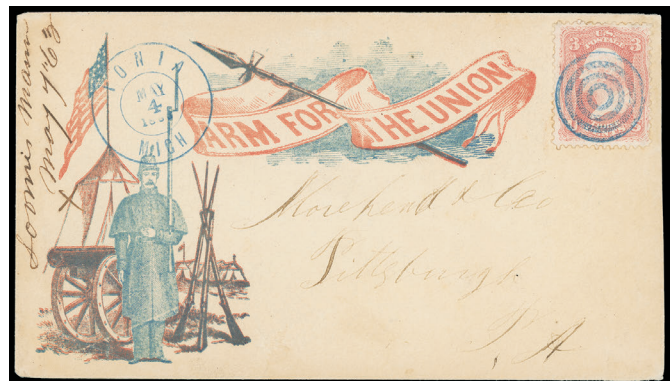 Loomis Mann
May 4/63
IONIA
MAY
4
MICH
ARM FOR THE UNION
3 U.S. 3
POSTAGE
Morehead & Co
Pittsburgh
PA